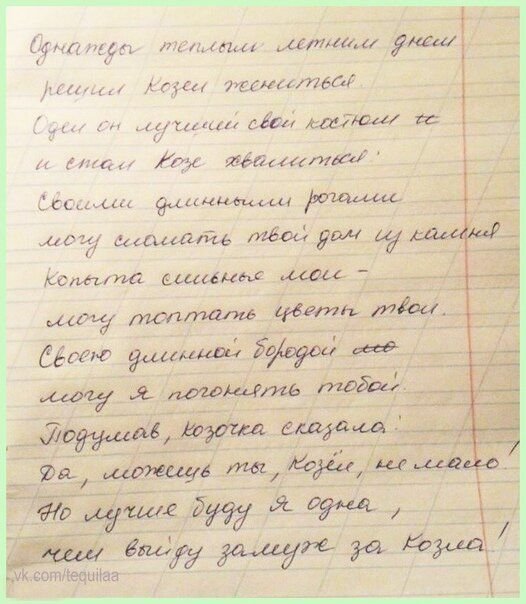 Однажды теплым летним днем
решил Козел жениться.
Одел он лучший свой костюм и
и стал Козе хвалиться:
Своими длинными рогами
могу сломать твой дом из камня
Копыта сильные мои –
могу топтать цветы твои.
Своею длинной бородой мо
могу я погонять тобой.
Подумав, Козочка сказала:
Да, можешь ты, Козёл, не мало!
Но лучше буду я одна,
чем выйду замуж за Козла!
vk.com/tequilaa